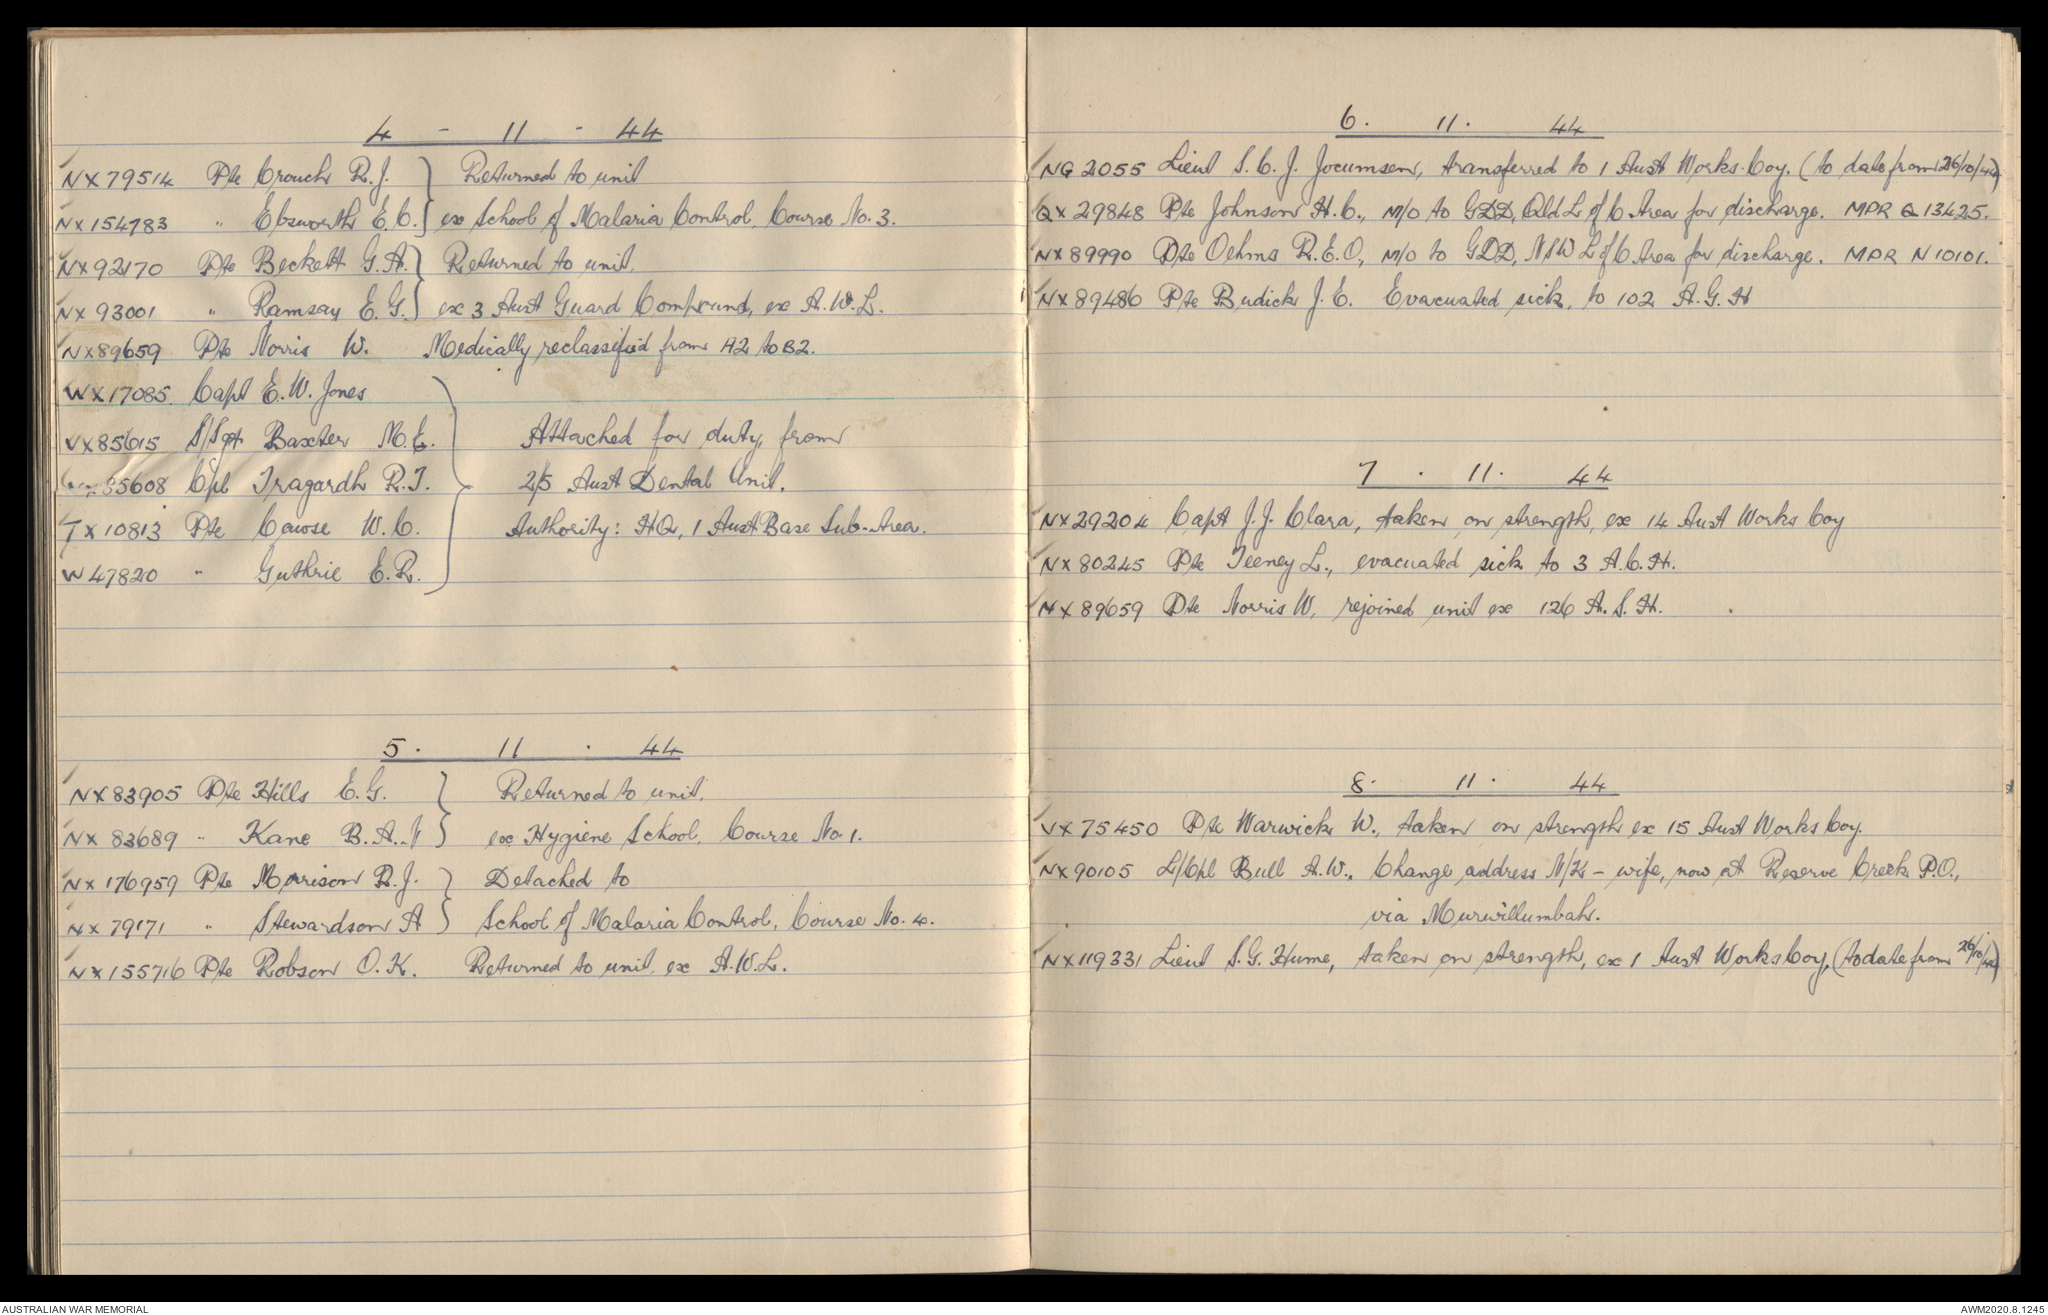 4 - 11 - 44
NX79514 Pte Crouch R.J. } Returned to unit
NX154783 " Ebsworth E.C. } ex School of Malaria Control. Course No. 3.
NX92170 Pte Beckett G.A. } Returned to unit,
NX93001 " Ramsay E.G. } ex 3 Aust Guard Compound, ex A.W.L.
NX89659 Pte Norris W. Medically reclassified from A2 to B2.
WX17085. Capt E.W. Jones
VX85615 S/Sgt Baxter M.E. Attached for duty, from
85608 Cpl Tragardh R.T. 2/5 Aust Dental Unit.
TX10813 Pte Cawse W.C. Authority: HQ, 1 Aust Base Sub-Area.
W47820 " Guthrie E.R.
5. 11 . 44
NX83905 Pte Hills E.G. } Returned to unit,
NX83689 " Kane B.A.V } ex Hygiene School, Course No. 1.
NX176959 Pte Morrison R.J. } Detached to
NX79171 " Stewardson A } School of Malaria Control, Course No. 4.
NX155716 Pte Robson O.K. Returned to unit, ex A.W.L.
6. 11. 44
NG2055 Lieut S.C.J. Jocumsen, transferred to 1 Aust Works Coy. (to date from 26/10/44)
QX29848 Pte Johnson H.C., M/O to GDD, Qld L of C Area for discharge. MPR Q13425.
NX89990 Pte Oehms R.E.O, M/O to GDD, NSW L of C Area for discharge. MPR N10101.
NX89486 Pte Budick J.E. Evacuated sick, to 102 A.G.H
7 . 11. 44
NX29204 Capt J.J. Clara, taken on strength, ex 14 Aust Works Coy
NX80245 Pte Teeney L., evacuated sick to 3 A.C.H.
NX89659 Pte Norris W, rejoined unit ex 126 A.S.H.
8. 11. 44
VX75450 Pte Warwick W., taken on strength ex 15 Aust Works Coy.
NX90105 L/Cpl Bull A.W., Change address N/K - wife, now at Reserve Creek P.O.,
via Murwillumbah.
NX119331 Lieut S.G. Hume, taken on strength, ex 1 Aust Works Coy, (to date from 26/10/44)
AUSTRALIAN WAR MEMORIAL
AWM2020.8.1245